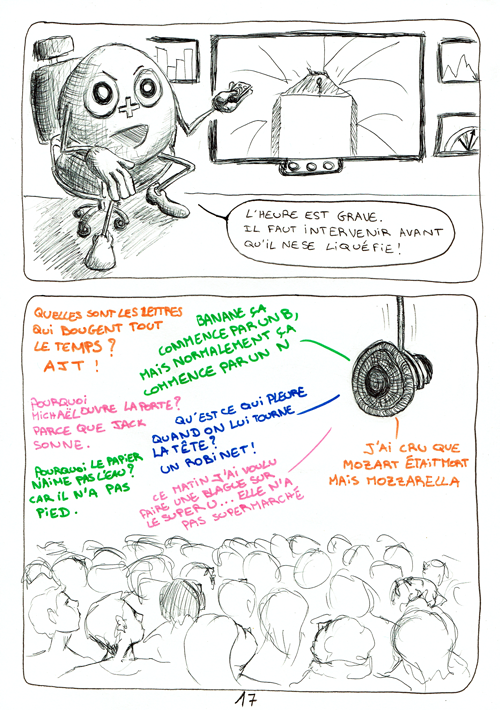 L'HEURE EST GRAVE.
IL FAUT INTERVENIR AVANT
QU'IL NE SE LIQUÉFIE!
QUELLES SONT LES LETTRES
QUI BOUGENT TOUT
LE TEMPS?
AJT!
BANANE ÇA
COMMENCE PAR UN B,
MAIS NORMALEMENT ÇA
COMMENCE PAR UN N
POURQUOI
MICHAËL OUVRE LA PORTE?
PARCE QUE JACK
SONNE.
QU'EST CE QUI PLEURE
QUAND ON LUI TOURNE
LA TÊTE?
UN ROBINET!
POURQUOI LE PAPIER
N'AIME PAS L'EAU?
CAR IL N'A PAS
PIED.
CE MATIN J'AI VOULU
FAIRE UNE BLAGUE SUR
LE SUPER U... ELLE N'A
PAS SUPERMARCHÉ
J'AI CRU QUE
MOZART ÉTAIT MORT
MAIS MOZZARELLA
17